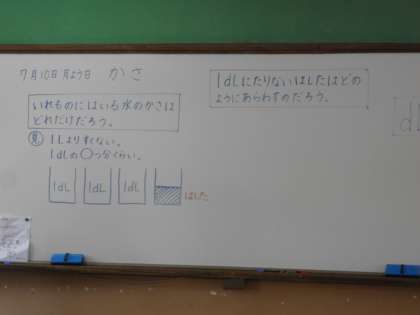 7月10日月よう日 かさ
いれものにはいる水のかさは
どれだけだろう。
見 1Lよりすくない。
1dLの○つ分くらい。
1dL 1dL 1dL はした
1dLにたりないはしたはどの
ようにあらわすのだろう。
dL